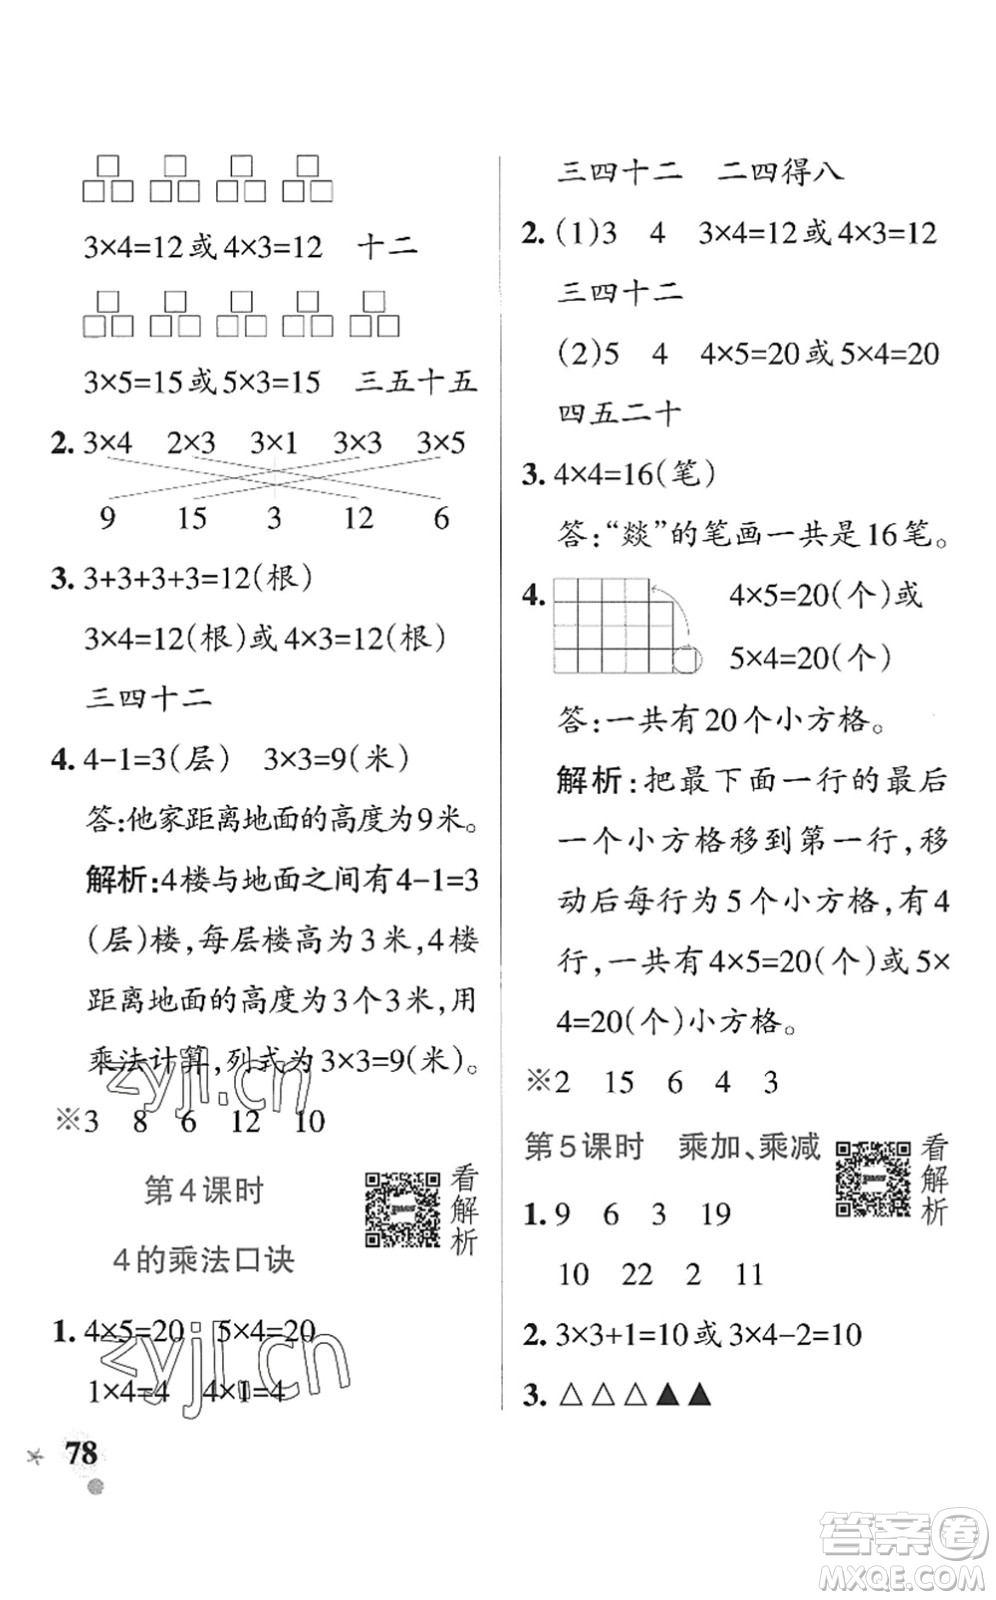 3×4=12或4×3=12 十二
3×5=15或5×3=15 三五十五
2. 3×4 2×3 3×1 3×3 3×5
9 15 3 12 6
3. 3+3+3+3=12(根)
3×4=12(根)或4×3=12(根)
三四十二
4. 4-1=3(层) 3×3=9(米)
答:他家距离地面的高度为9米。
解析:4楼与地面之间有4-1=3
(层)楼,每层楼高为3米,4楼
距离地面的高度为3个3米,用
乘法计算,列式为3×3=9(米)。
※3 8 6 12 10
第4课时
4的乘法口诀
看解析
1. 4×5=20 5×4=20
1×4=4 4×1=4
zyjl.cn
zyjl.cn
78
三四十二 二四得八
2. (1)3 4 3×4=12或4×3=12
三四十二
(2)5 4 4×5=20或5×4=20
四五二十
3. 4×4=16(笔)
答:“燚”的笔画一共是16笔。
4. 4×5=20(个)或
5×4=20(个)
答:一共有20个小方格。
解析:把最下面一行的最后
一个小方格移到第一行,移
动后每行为5个小方格,有4
行,一共有4×5=20(个)或5×
4=20(个)小方格。
※2 15 6 4 3
第5课时 乘加、乘减
看解析
1. 9 6 3 19
10 22 2 11
2. 3×3+1=10或3×4-2=10
3. △△△▲▲
答案卷
MXQE.COM